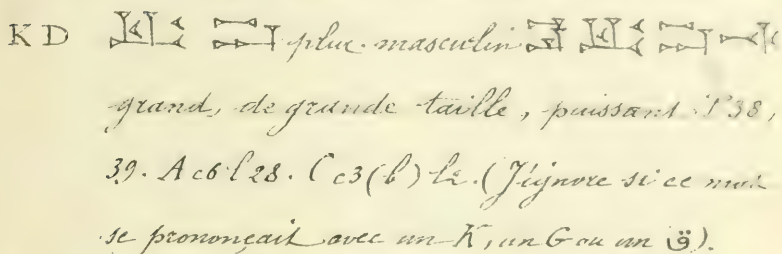 K D plur. masculin
grand, de grande taille, puissant
39. A c6 l 28. C c3(b) l2. (J'ignore si ce mot
se prononçait avec un K, un G ou un ق).